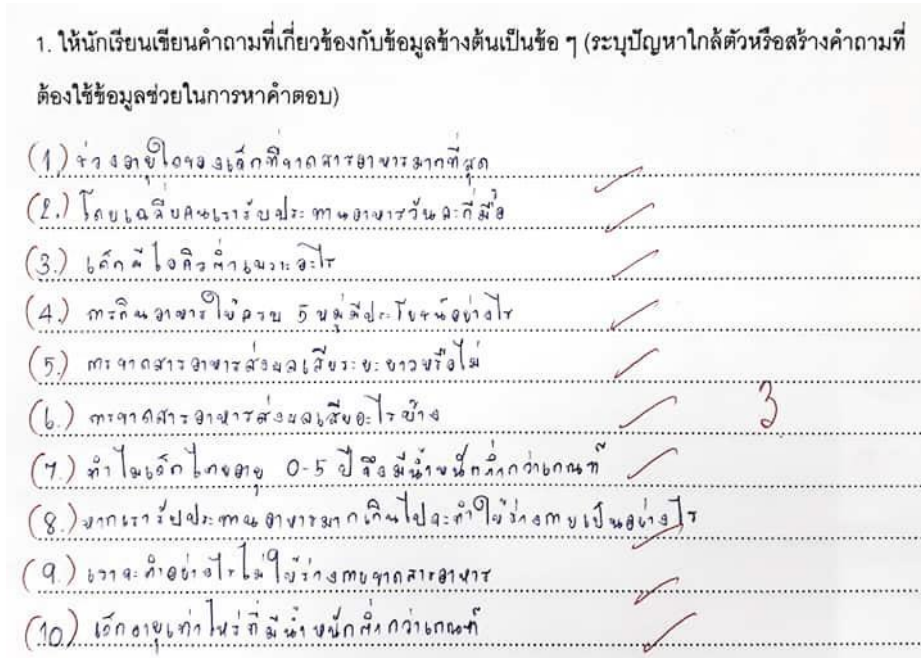 1. ให้นักเรียนเขียนคำถามที่เกี่ยวข้องกับข้อมูลข้างต้นเป็นข้อ ๆ (ระบุปัญหาใกล้ตัวหรือสร้างคำถามที่
ต้องใช้ข้อมูลช่วยในการหาคำตอบ)
(1) ช่วงอายุใดของเด็กที่ขาดสารอาหารมากที่สุด
(2.) โดยเฉลี่ยคนเรารับประทานอาหารวันละกี่มื้อ
(3.) เด็กมีไอคิวต่ำเพราะอะไร
(4.) การกินอาหารให้ครบ 5 หมู่มีประโยชน์อย่างไร
(5.) การขาดสารอาหารส่งผลเสียระยะยาวหรือไม่
(6.) การขาดสารอาหารส่งผลเสียอะไรบ้าง 3
(7.) ทำไมเด็กไทยอายุ 0-5 ปี จึงมีน้ำหนักต่ำกว่าเกณฑ์
(8.) หากเรารับประทานอาหารมากเกินไปจะทำให้ร่างกายเป็นอย่างไร
(9.) เราจะทำอย่างไรไม่ให้ร่างกายขาดสารอาหาร
(10) เด็กอายุเท่าไหร่ที่มีน้ำหนักต่ำกว่าเกณฑ์